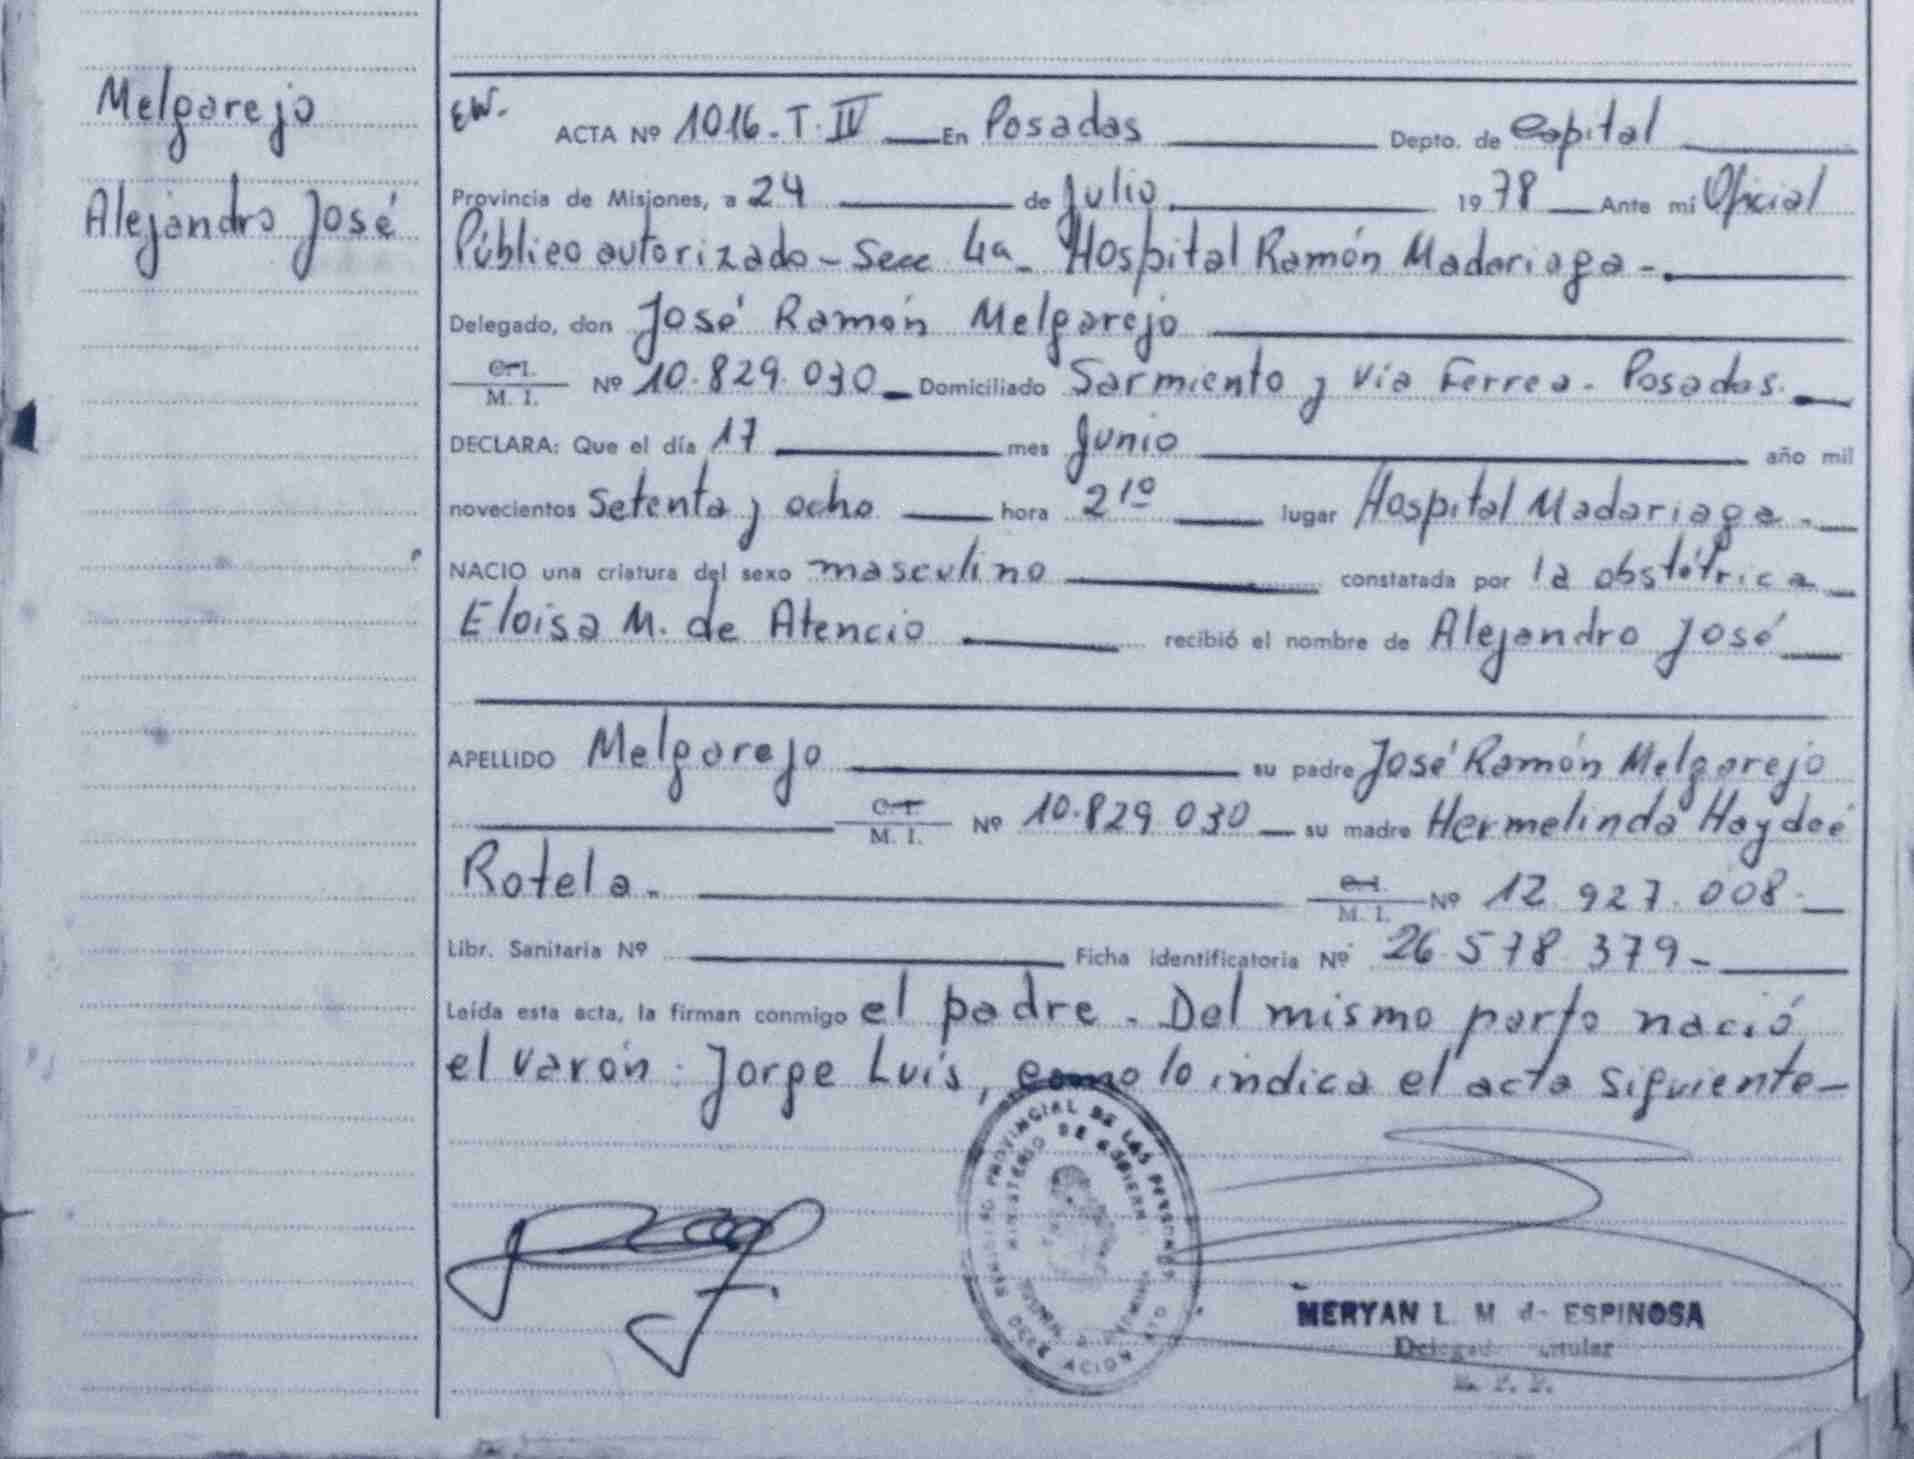 Melgarejo
Alejandro José
EW.
ACTA Nº 1016-T.IV En Posadas Depto. de Capital
Provincia de Misiones, a 24 de Julio 1978 Ante mí Oficial
Público autorizado - Secc 4a- Hospital Ramón Madariaga -
Delegado, don José Ramón Melgarejo
C. I.
M. I. Nº 10.829.030 Domiciliado Sarmiento y Vía Ferrea - Posadas.
DECLARA: Que el día 17 mes Junio año mil
novecientos Setenta y ocho hora 2 10 lugar Hospital Madariaga -
NACIO una criatura del sexo masculino constatada por la obstétrica
Eloisa M. de Atencio recibió el nombre de Alejandro José
APELLIDO Melgarejo su padre José Ramón Melgarejo
C. I.
M. I. Nº 10.829 030 su madre Hermelinda Haydeé
Rotela - C. I.
M. I. Nº 12.927.008-
Libr. Sanitaria Nº Ficha identificatoria Nº 26.578.379-
Leída esta acta, la firman conmigo el padre - Del mismo parto nació
el varón: Jorge Luis, como lo indica el acta siguiente-
PROVINCIAL DE LAS PERSONAS
MINISTERIO DE GOBIERNO
MERYAN L. M. de ESPINOSA
Delegado Titular